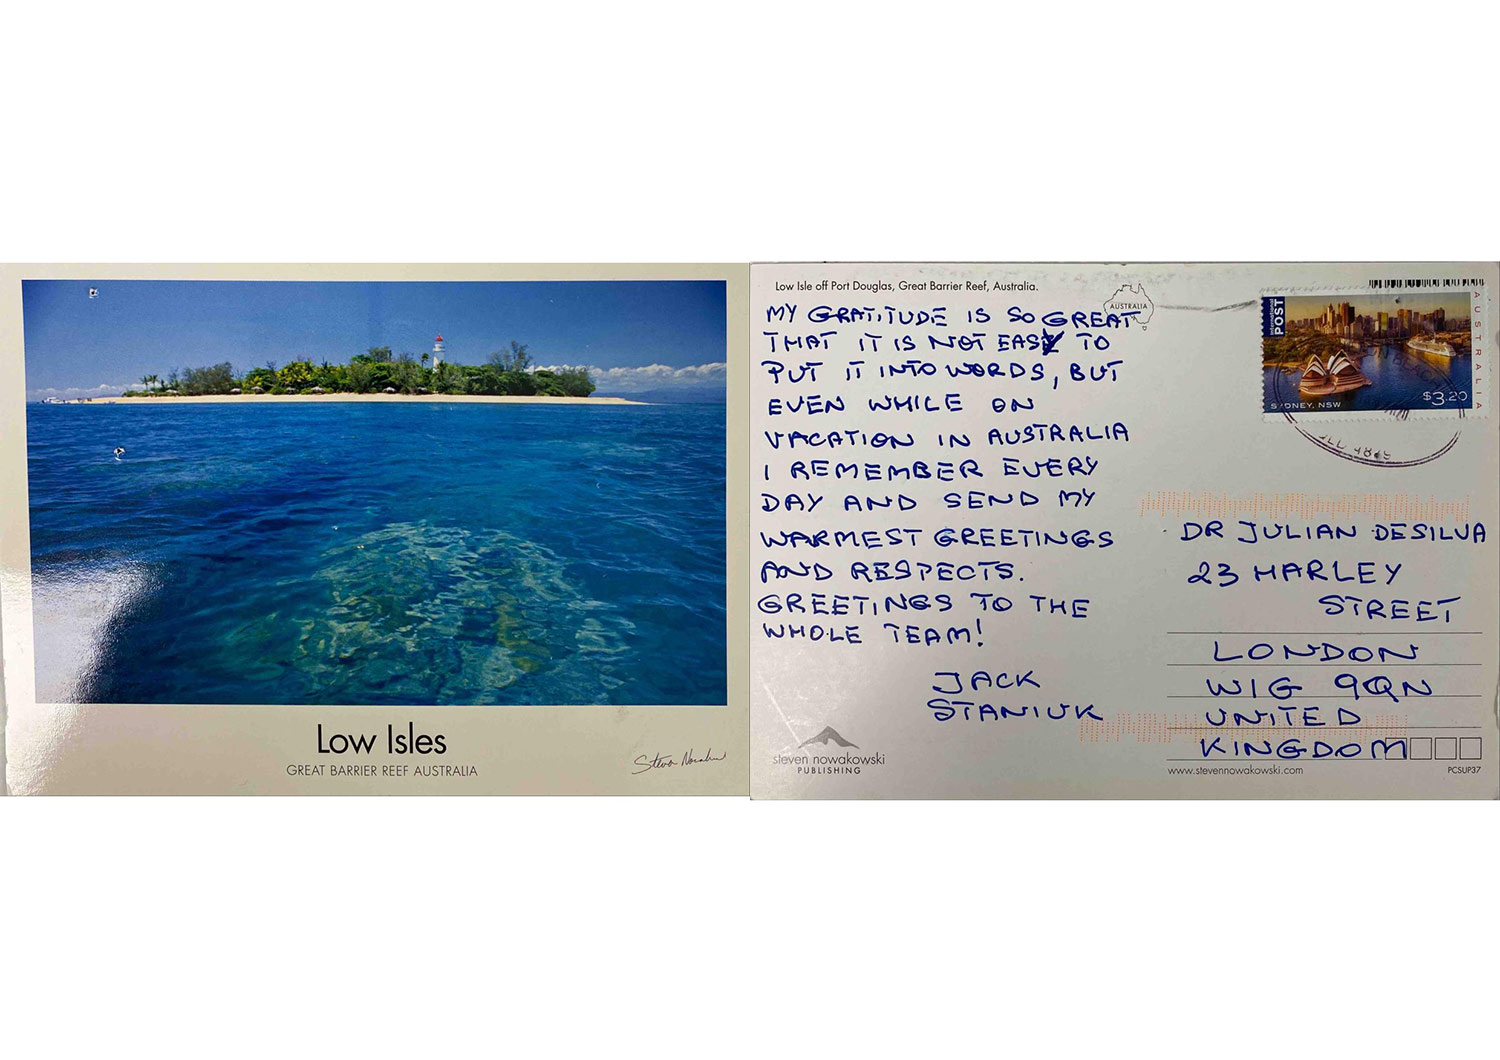 Low Isles
GREAT BARRIER REEF AUSTRALIA
Low Isle off Port Douglas, Great Barrier Reef, Australia.
AUSTRALIA
MY GRATITUDE IS SO GREAT
THAT IT IS NOT EASY TO
PUT IT INTO WORDS, BUT
EVEN WHILE ON
VACATION IN AUSTRALIA
I REMEMBER EVERY
DAY AND SEND MY
WARMEST GREETINGS
AND RESPECTS.
GREETINGS TO THE
WHOLE TEAM!
JACK
STANIUK
steven nowakowski
PUBLISHING
International
POST
AUSTRALIA
SYDNEY, NSW
$3.20
DR JULIAN DESILVA
23 HARLEY
STREET
LONDON
W1G 9QN
UNITED
KINGDOM
www.stevennowakowski.com
PCSUP37